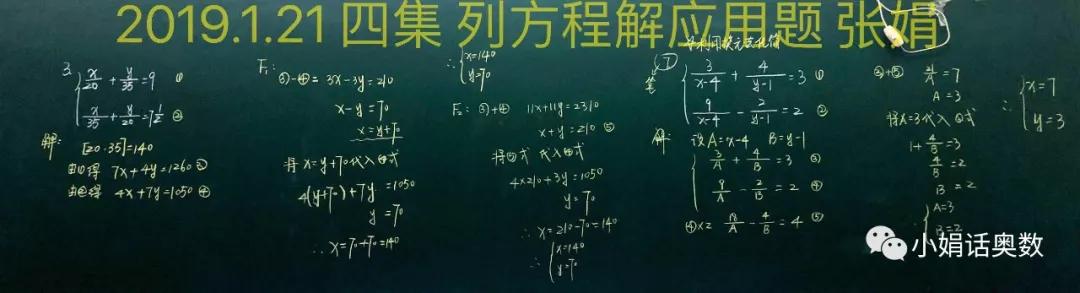 2019.1.21 四集 列方程解应用题 张娟
3.
x/20 + y/35 = 9 ①
x/35 + y/20 = 7½ ②
解:
[20·35]=140
由①得 7x+4y=1260 ③
由②得 4x+7y=1050 ④
F₁:
③-④= 3x-3y=210
x-y=70
x=y+70
将x=y+70代入④式
4(y+70)+7y=1050
y=70
∴x=70+70=140
∴{x=140
y=70
F₂: ③+④ 11x+11y=2310
x+y=210 ⑤
将⑤式代入④式
4×210+3y=1050
y=70
∴x=210-70=140
∴{x=140
y=70
利用换元法化简
笔 ⑦
3/(x-4) + 4/(y-1) = 3 ①
9/(x-4) - 2/(y-1) = 2 ②
解:
设A=x-4 B=y-1
3/A + 4/B = 3 ③
9/A - 2/B = 2 ④
④×2= 18/A - 4/B = 4 ⑤
③+⑤ 21/A = 7
A=3
将A=3代入③式
1+4/B=3
4/B=2
B=2
∴{A=3
B=2
∴{x=7
y=3
小娟话奥数